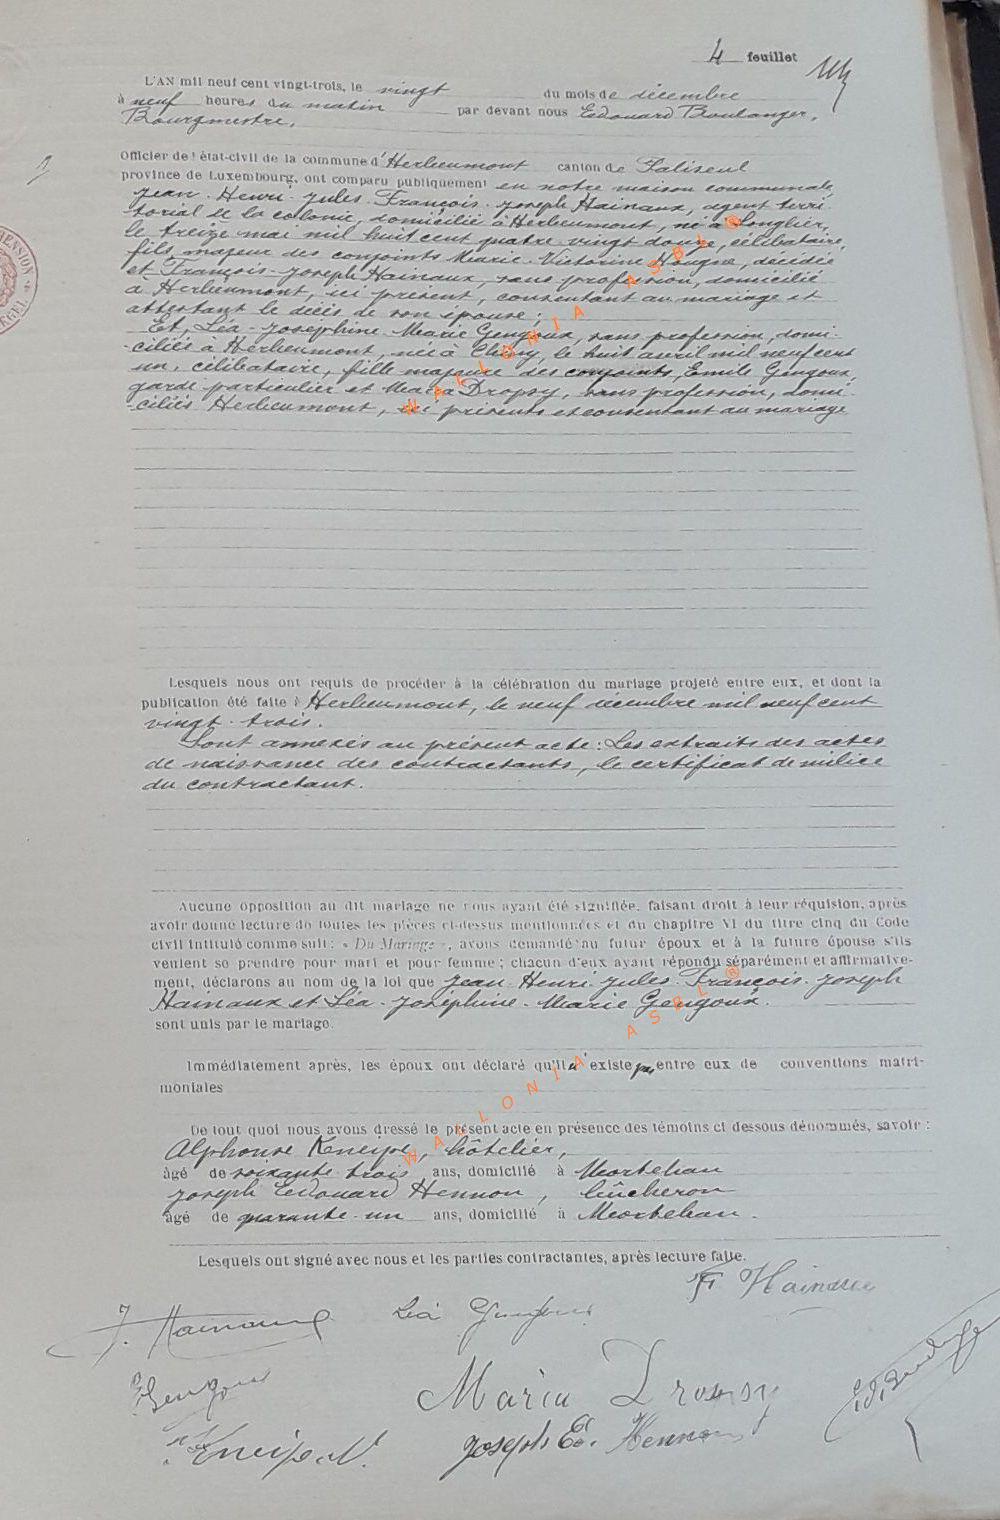 4 feuillet
L'AN mil neuf cent vingt-trois, le vingt du mois de décembre
à neuf heures du matin par devant nous Edouard Boulanger,
Bourgmestre,
Officier de l'état-civil de la commune d'Herbeumont canton de Paliseul
province de Luxembourg, ont comparu publiquement en notre maison communale,
Jean-Henri-Jules-François-Joseph Hainaux, agent terri-
torial de la colonie, domicilié à Herbeumont, né à Longlier,
le treize mai mil huit cent quatre vingt douze, célibataire,
fils majeur des conjoints Marie-Victorine Hougne, décédée
et François-Joseph Hainaux, sans profession, domicilié
à Herbeumont, ici présent, consentant au mariage et
attestant le décès de son épouse;
Et, Léa-Joséphine-Marie Gengoux, sans profession, domi-
-ciliée à Herbeumont, née à Chiny, le huit avril mil neuf cent
un, célibataire, fille majeure des conjoints, Emile Gengoux,
garde particulier et Maria Dropsy, sans profession, domi-
-ciliés Herbeumont, ici présents et consentant au mariage
Lesquels nous ont requis de procéder à la célébration du mariage projeté entre eux, et dont la
publication été faite à Herbeumont, le neuf décembre mil neuf cent
vingt-trois.
Sont annexés au présent acte: Les extraits des actes
de naissance des contractants, le certificat de milice
du contractant.
Aucune opposition au dit mariage ne nous ayant été signifiée, faisant droit à leur réquision, après
avoir donné lecture de toutes les pièces ci-dessus mentionnées et du chapitre VI du titre cinq du Code
civil intitulé comme suit: « Du Mariage », avons demandé au futur époux et à la future épouse s'ils
veulent se prendre pour mari et pour femme; chacun d'eux ayant répondu séparément et affirmative-
ment, déclarons au nom de la loi que Jean-Henri-Jules-François-Joseph
Hainaux et Léa-Joséphine-Marie Gengoux.
sont unis par le mariage.
Immédiatement après, les époux ont déclaré qu'il n'existe pas entre eux de conventions matri-
moniales
De tout quoi nous avons dressé le présent acte en présence des témoins ci dessous dénommés, savoir:
Alphonse Kneipe, hôtelier,
âgé de soixante-trois ans, domicilié à Mortehan
Joseph Edouard Hennon, bûcheron
âgé de quarante-un ans, domicilié à Mortehan.
Lesquels ont signé avec nous et les parties contractantes, après lecture faite.
F. Hainaux
J. Hainaux Léa Gengoux
E. Gengoux Maria Dropsy Ed. Boulanger
Kneipe A. Joseph Ed. Hennon
WALLONIA ASBL ®
WALLONIA ASBL ®